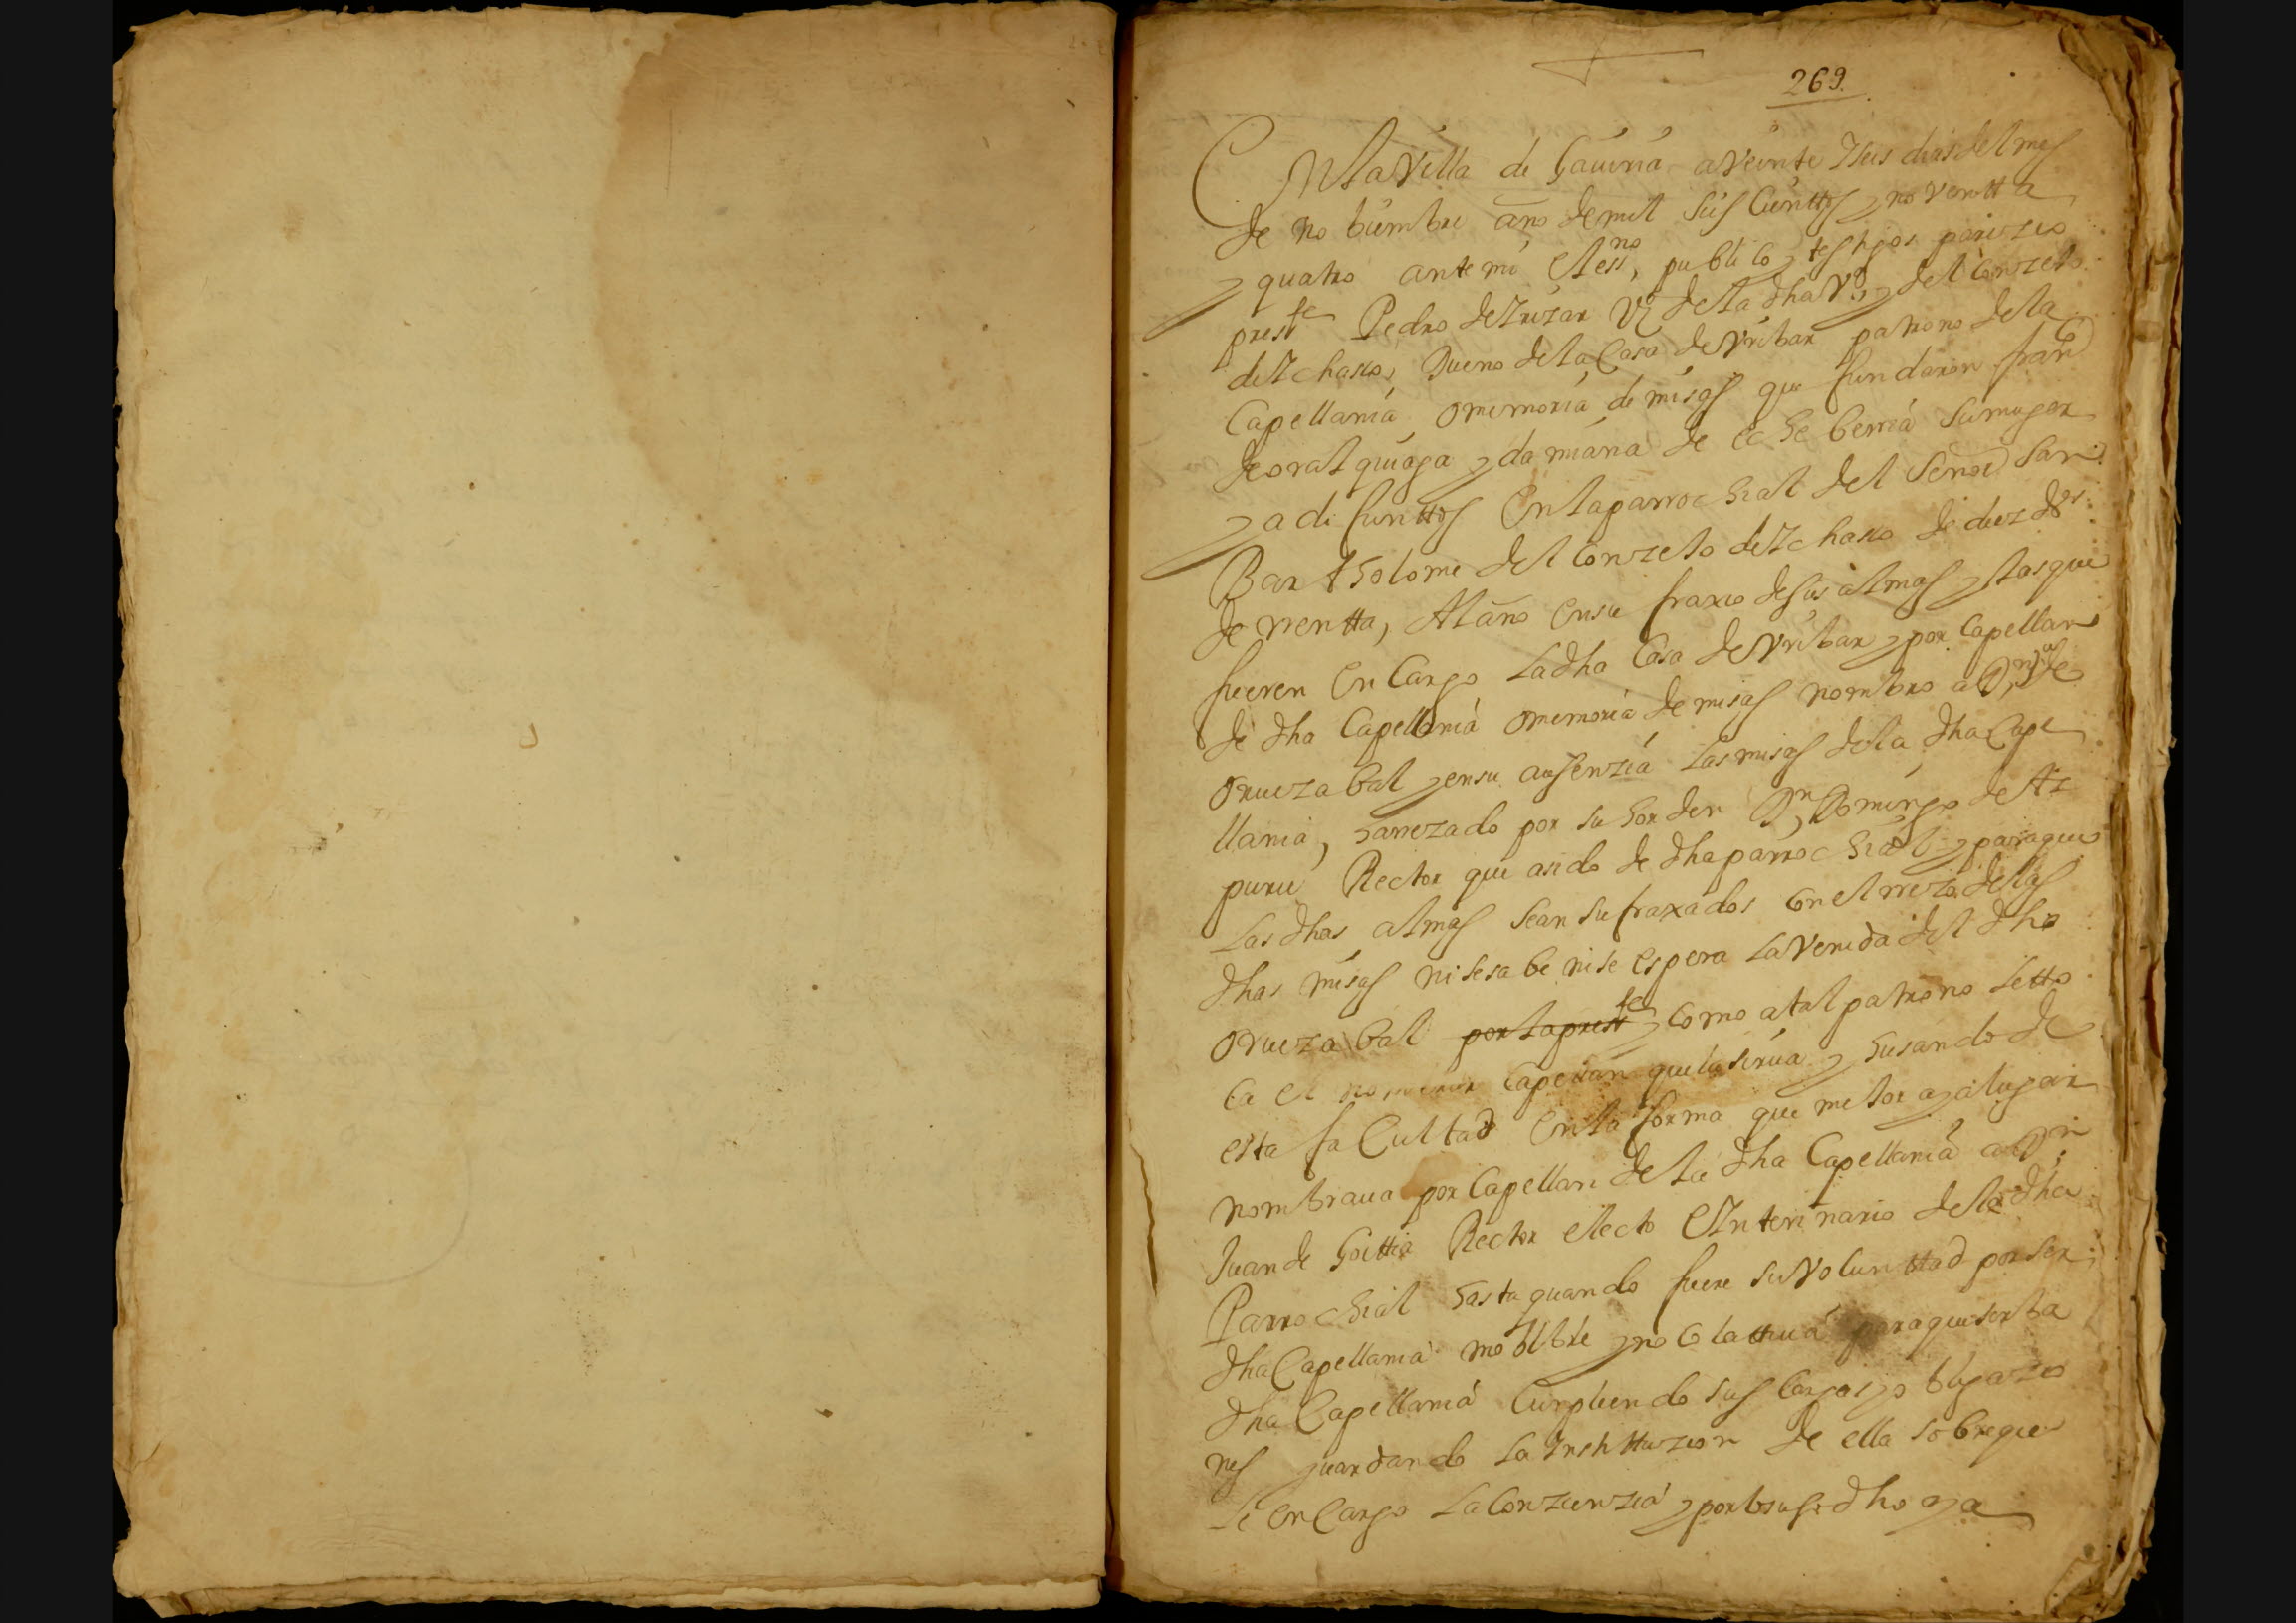 269.
En la Villa de Gauiria a Veinte y seis dias del mes
de nobiembre año de mil seiscienttos y noventta
y quatro ante mi el essno, publico y testigos parezio
presste Pedro de Irizar Vzo de la dha Va, y del Conzejo
de Ichasso, Dueno de la Casa de Vribar patrono de la
Capellania o memoria de misas que fundaron franco
de oralquiaga y damiana de echeberria su muger
ya difunttos en la parrochial del Señor San
Bartholome del Conzejo de Ichasso de diez ds
de rrentta, Al año en sufraxio de sus almas y las que
fueren en Cargo la dha Casa de Vribar y por Capellan
de dha Capellania o memoria de misas nombro a Dn, Ju de
oruezabal y en su ausenzia las misas de la dha Cape
llania, ha rrezado por su horden Dn, Domingo de Az
puru Rector que a sido de dha parrochial y para que
las dhas almas sean sufraxados con el rrezo de las
dhas misas ni se sabe ni se espera la Venida del dho
oruezabal por la presste y como a tal patrono le tto
ca el nombrar Capellan que la sirua y husando de
esta facultad en la forma que mejor aya lugar
nombraua por Capellan de la dha Capellania a Dn,
Juan de Goittia Rector electo e Interinario de la dha
Parrochial hasta quando fuere su Volunttad por ser
dha Capellania mobible y no Colattiua para que serba
dha Capellania Cumpliendo sus Cargas y obligazio
nes guardando la Instittuzion de ella sobre que
le encargo la Conzienzia y por lo susodho aya